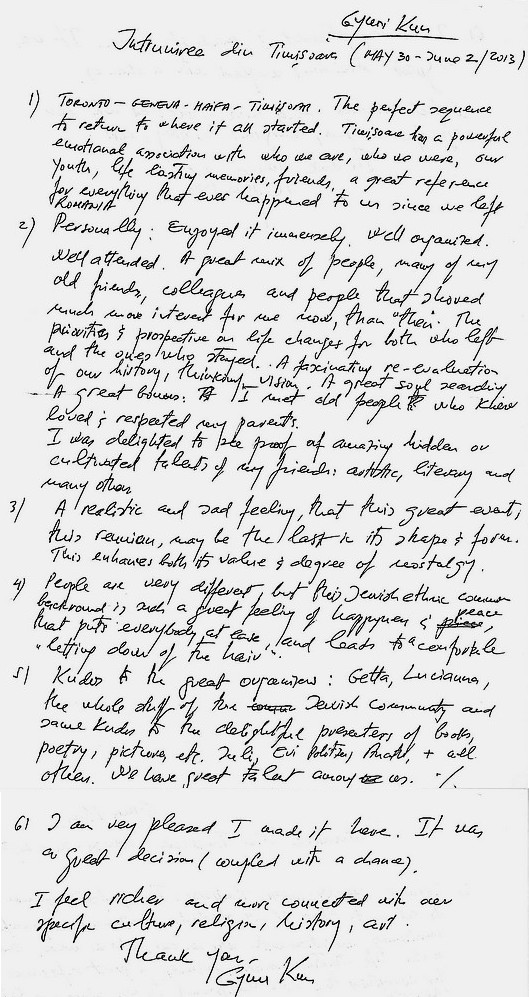 Gyuri Kun
Intrunirea din Timișoara (MAY 30 - June 2/2013)
1) TORONTO - GENEVA - HAIFA - TIMIȘOARA. The perfect sequence
to return to where it all started. Timisoara has a powerful
emotional association with who we are, who we were, our
youth, life lasting memories, friends, a great reference
for everything that ever happened to us since we left
ROMANIA
2) Personally: Enjoyed it immensely. Well organized.
Well attended. A great mix of people, many of my
old friends, colleagues and people that showed
much more interest for me now, than "then". The
priorities & prospective on life changes for both who left
and the ones who stayed. A fascinating re-evaluation
of our history, thinking, vision. A great soul searching
A great bonus: I met old people who knew
loved & respected my parents.
I was delighted to see proof of amazing hidden or
cultivated talents of my friends: artistic, literary and
many others
3) A realistic and sad feeling, that this great event,
this reunion, may be the last in its shape & form.
This enhances both its value & degree of nostalgy.
4) People are very different, but this Jewish ethnic common
background is such a great feeling of happyness & peace,
that puts everybody at ease, and leads to a comfortable
"letting down of the hair".
5) Kudos to the great organizers: Getta, Lucianna,
the whole staff of the Jewish Community and
same Kudos to the delightful presenters of books,
poetry, pictures, etc. Evi + all
others. We have great talent among us. ·/.
6) I am very pleased I made it here. It was
a great decision (coupled with a chance).
I feel richer and more connected with our
specific culture, religion, history, art.
Thank you,
Gyuri Kun